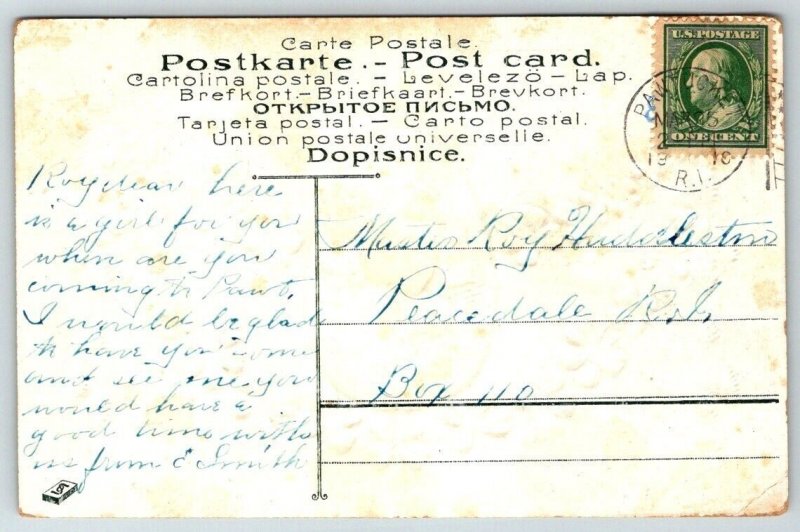 Carte Postale.
Postkarte. - Post card.
Cartolina postale. - Levelezö - Lap.
Brefkort. - Briefkaart. - Brevkort.
ОТКРЫТОЕ ПИСЬМО.
Tarjeta postal. - Carto postal.
Union postale universelle.
Dopisnice.
U.S. POSTAGE
ONE CENT
19 10
R.I.
Roy dear here
is a girl for you
when are you
coming to Pawt.
I would be glad
to have you come
and see me you
would have a
good time with
us from E Smith
Master Roy Huddleston
Peacedale R.I.
Box 110